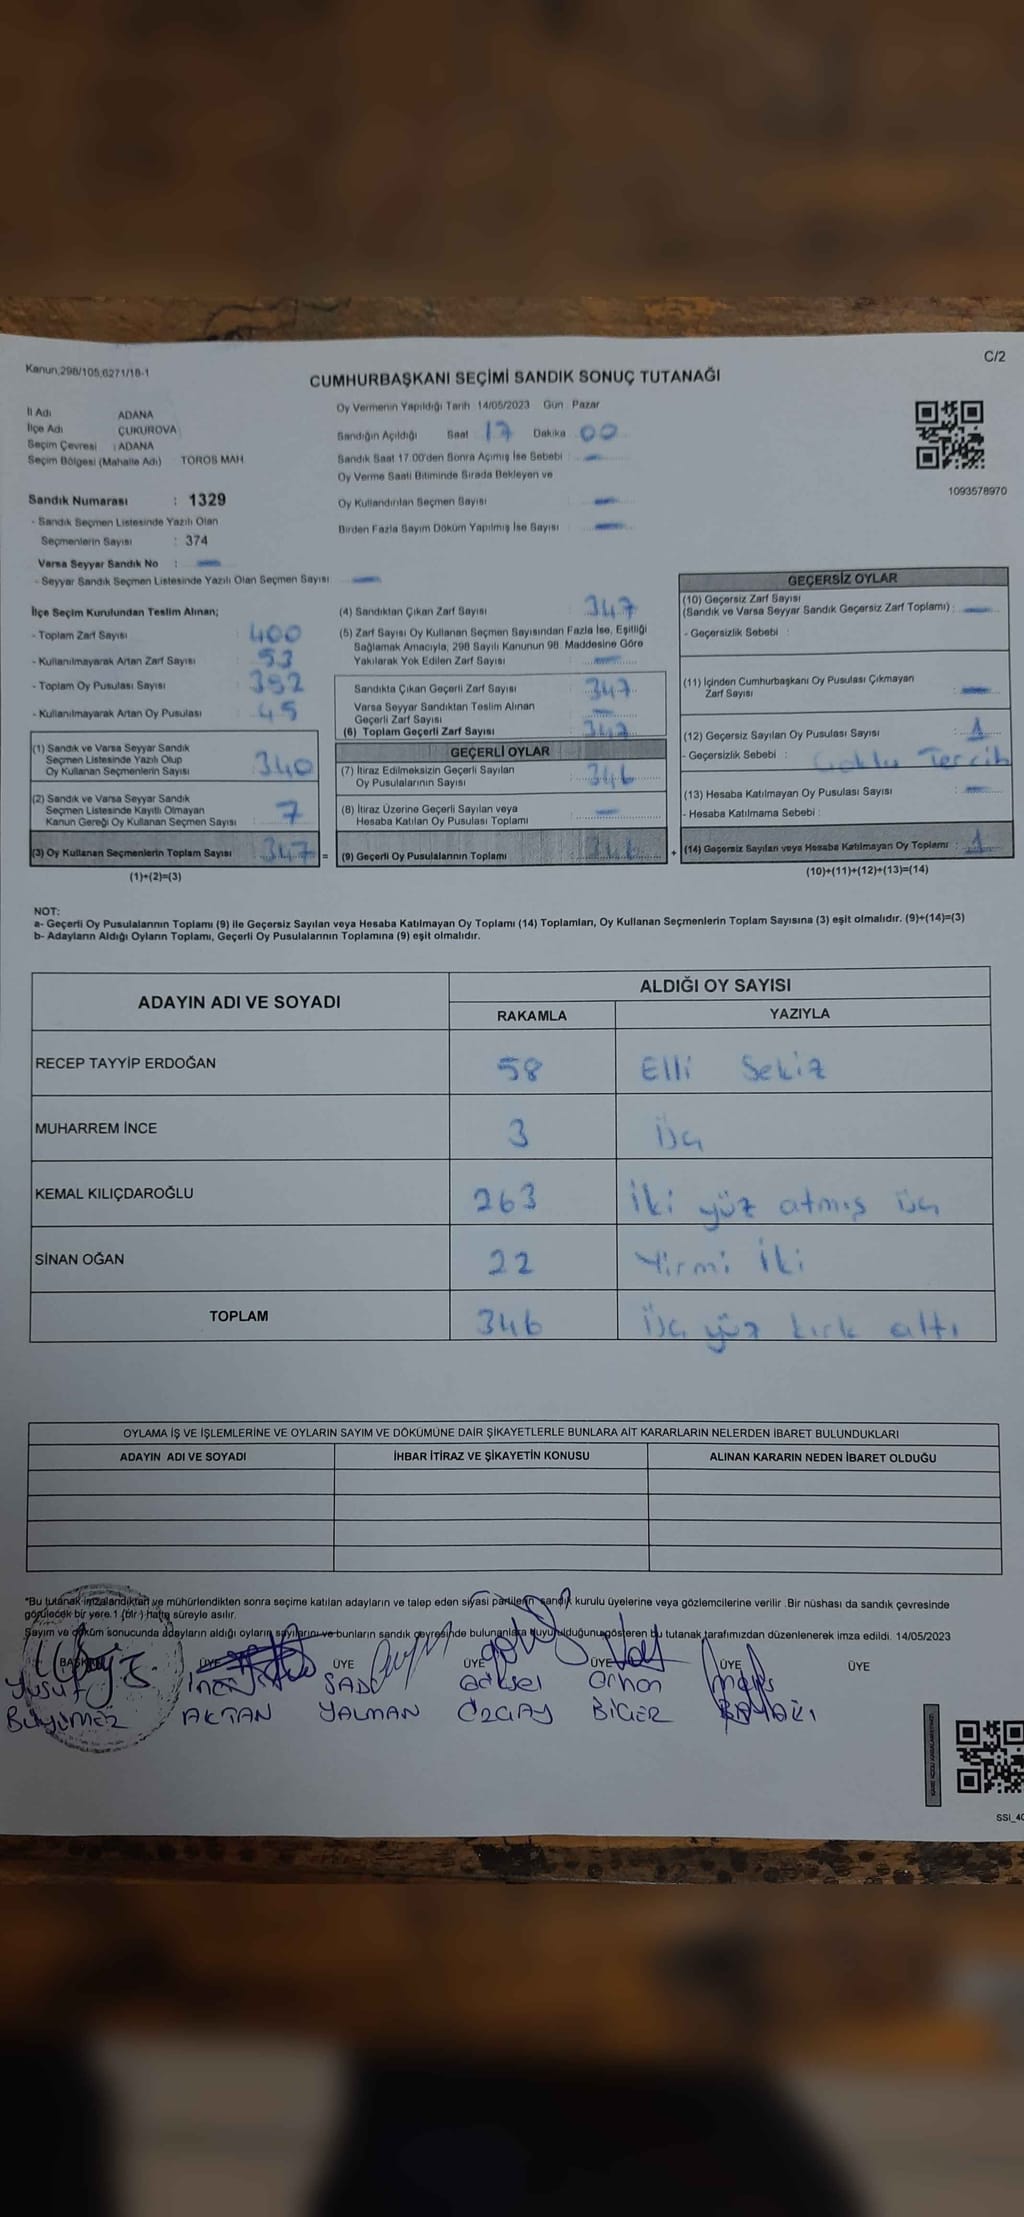 Kanun:298/105;6271/18-1
C/2
CUMHURBAŞKANI SEÇİMİ SANDIK SONUÇ TUTANAĞI
İl Adı ADANA
İlçe Adı ÇUKUROVA
Seçim Çevresi : ADANA
Seçim Bölgesi (Mahalle Adı) TOROS MAH.
Sandık Numarası : 1329
- Sandık Seçmen Listesinde Yazılı Olan
Seçmenlerin Sayısı : 374
Varsa Seyyar Sandık No : —
- Seyyar Sandık Seçmen Listesinde Yazılı Olan Seçmen Sayısı —
Oy Vermenin Yapıldığı Tarih 14/05/2023 Gün Pazar
Sandığın Açıldığı Saat 17 Dakika 00
Sandık Saat 17.00'den Sonra Açımış İse Sebebi : —
Oy Verme Saati Bitiminde Sırada Bekleyen ve
Oy Kullandırılan Seçmen Sayısı : —
Birden Fazla Sayım Döküm Yapılmış İse Sayısı —
1093578970
İlçe Seçim Kurulundan Teslim Alınan;
- Toplam Zarf Sayısı 400
- Kullanılmayarak Artan Zarf Sayısı 53
- Toplam Oy Pusulası Sayısı 392
- Kullanılmayarak Artan Oy Pusulası 45
(1) Sandık ve Varsa Seyyar Sandık
Seçmen Listesinde Yazılı Olup
Oy Kullanan Seçmenlerin Sayısı 340
(2) Sandık ve Varsa Seyyar Sandık
Seçmen Listesinde Kayıtlı Olmayan
Kanun Gereği Oy Kullanan Seçmen Sayısı : 7
(3) Oy Kullanan Seçmenlerin Toplam Sayısı : 347 =
(1)+(2)=(3)
(4) Sandıktan Çıkan Zarf Sayısı 347
(5) Zarf Sayısı Oy Kullanan Seçmen Sayısından Fazla İse, Eşitliği
Sağlamak Amacıyla, 298 Sayılı Kanunun 98. Maddesine Göre
Yakılarak Yok Edilen Zarf Sayısı —
Sandıkta Çıkan Geçerli Zarf Sayısı : 347
Varsa Seyyar Sandıktan Teslim Alınan
Geçerli Zarf Sayısı —
(6) Toplam Geçerli Zarf Sayısı : 347
GEÇERLİ OYLAR
(7) İtiraz Edilmeksizin Geçerli Sayılan
Oy Pusulalarının Sayısı : 346
(8) İtiraz Üzerine Geçerli Sayılan veya
Hesaba Katılan Oy Pusulası Toplamı —
(9) Geçerli Oy Pusulalarının Toplamı 346 +
GEÇERSİZ OYLAR
(10) Geçersiz Zarf Sayısı
(Sandık ve Varsa Seyyar Sandık Geçersiz Zarf Toplamı) : —
- Geçersizlik Sebebi :
(11) İçinden Cumhurbaşkanı Oy Pusulası Çıkmayan
Zarf Sayısı —
(12) Geçersiz Sayılan Oy Pusulası Sayısı 1
- Geçersizlik Sebebi : Çoklu Tercih
(13) Hesaba Katılmayan Oy Pusulası Sayısı —
- Hesaba Katılmama Sebebi :
(14) Geçersiz Sayılan veya Hesaba Katılmayan Oy Toplamı : 1
(10)+(11)+(12)+(13)=(14)
NOT:
a- Geçerli Oy Pusulalarının Toplamı (9) ile Geçersiz Sayılan veya Hesaba Katılmayan Oy Toplamı (14) Toplamları, Oy Kullanan Seçmenlerin Toplam Sayısına (3) eşit olmalıdır. (9)+(14)=(3)
b- Adayların Aldığı Oyların Toplamı, Geçerli Oy Pusulalarının Toplamına (9) eşit olmalıdır.
ADAYIN ADI VE SOYADI
ALDIĞI OY SAYISI
RAKAMLA YAZIYLA
RECEP TAYYİP ERDOĞAN 58 Elli Sekiz
MUHARREM İNCE 3 üç
KEMAL KILIÇDAROĞLU 263 İki yüz atmış üç
SİNAN OĞAN 22 Yirmi İki
TOPLAM 346 Üç yüz kırk altı
OYLAMA İŞ VE İŞLEMLERİNE VE OYLARIN SAYIM VE DÖKÜMÜNE DAİR ŞİKAYETLERLE BUNLARA AİT KARARLARIN NELERDEN İBARET BULUNDUKLARI
ADAYIN ADI VE SOYADI İHBAR İTİRAZ VE ŞİKAYETİN KONUSU ALINAN KARARIN NEDEN İBARET OLDUĞU
*Bu tutanak imzalandıktan ve mühürlendikten sonra seçime katılan adayların ve talep eden siyasi partilerin sandık kurulu üyelerine veya gözlemcilerine verilir. Bir nüshası da sandık çevresinde
görülecek bir yere 1 (bir) hafta süreyle asılır.
Sayım ve döküm sonucunda adayların aldığı oyların sayılarını ve bunların sandık çevresinde bulunanlara duyurulduğunu gösteren bu tutanak tarafımızdan düzenlenerek imza edildi. 14/05/2023
BAŞKAN ÜYE ÜYE ÜYE ÜYE ÜYE ÜYE
Yusuf Göksel Orhan
Büyümez AKTAN YALMAN ÖZGAY BİÇER